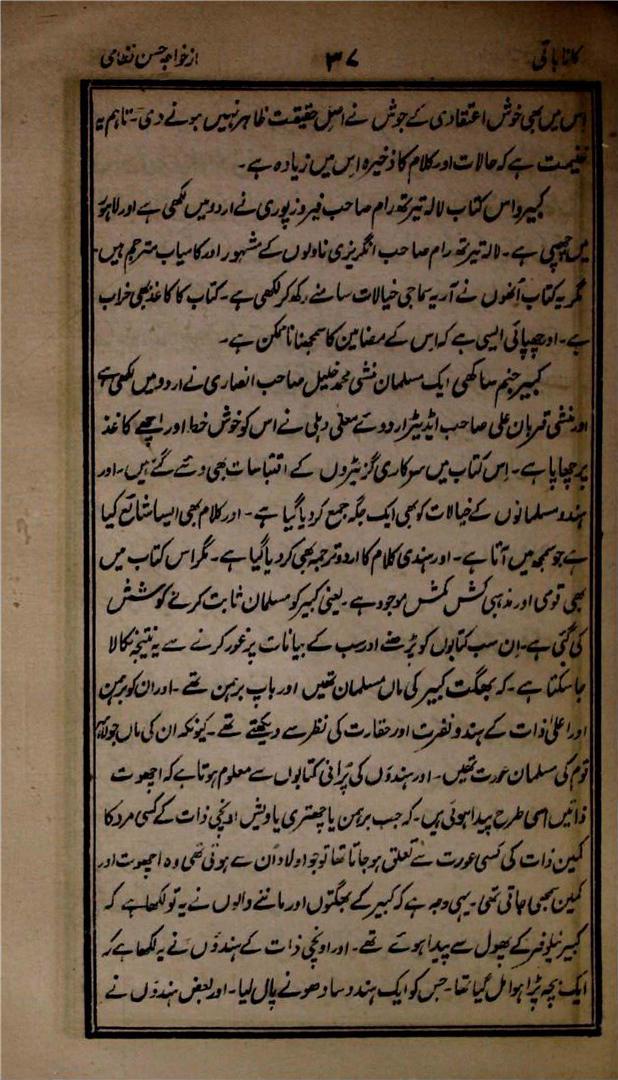 کانا باتی ۳۷ از خواجہ حسن نظامی
اس میں بھی خوش اعتقادی کے جوش نے اصل حقیقت ظاہر نہیں ہونے دی۔ تاہم یہ
غنیمت ہے کہ حالات اور کلام کا ذخیرہ اس میں زیادہ ہے۔
کبیر داس کتاب لالہ تیرتھ رام صاحب فیروز پوری نے اردو میں لکھی ہے اور لاہور
میں چھپی ہے۔ لالہ تیرتھ رام صاحب انگریزی ناولوں کے مشہور اور کامیاب مترجم ہیں۔
مگر یہ کتاب اُنہوں نے آریہ سماجی خیالات سامنے رکھ کر لکھی ہے۔ کتاب کا کاغذ بھی خراب
ہے۔ اور چھپائی ایسی ہے کہ اس کے مضامین کا سمجھنا ناممکن ہے۔
کبیر جنم ساکھی ایک مسلمان منشی محمد خلیل صاحب انصاری نے اردو میں لکھی ہے
اور منشی قربان علی صاحب ایڈیٹر اردوئے معلیٰ دہلی نے اس کو خوش خط اور اچھے کاغذ
پر چھاپا ہے۔ اِس کتاب میں سرکاری گزیٹروں کے اقتباسات بھی دئے گئے ہیں۔ اور
ہندو مسلمانوں کے خیالات کو بھی ایک جگہ جمع کر دیا گیا ہے۔ اور کلام بھی ایسا شائع کیا
ہے جو سمجھ میں آتا ہے۔ اور ہندی کلام کا اردو ترجمہ بھی کر دیا گیا ہے۔ مگر اس کتاب میں
بھی قومی اور مذہبی کش مکش موجود ہے۔ یعنی کبیر کو مسلمان ثابت کرنے کی کوشش
کی گئی ہے۔ اِن سب کتابوں کو پڑھنے اور سب کے بیانات پر غور کرنے سے یہ نتیجہ نکالا
جا سکتا ہے۔ کہ بھگت کبیر کی ماں مسلمان تھیں اور باپ برہمن تھے۔ اور ان کو برہمن
اور اعلیٰ ذات کے ہندو نفرت اور حقارت کی نظر سے دیکھتے تھے۔ کیونکہ ان کی ماں جولاہہ
قوم کی مسلمان عورت تھیں۔ اور ہندوؤں کی پُرانی کتابوں سے معلوم ہوتا ہے کہ اچھوت
ذاتیں اسی طرح پیدا ہوئی ہیں۔ کہ جب برہمن یا چھتری یا ویش اونچی ذات کے کسی مرد کا
کمین ذات کی کسی عورت سے تعلق ہو جاتا تھا تو جو اولاد اُن سے ہوتی تھی وہ اچھوت اور
کمین سمجھی جاتی تھی۔ یہی وجہ ہے کہ کبیر کے بھگتوں اور ماننے والوں نے یہ تو لکھا ہے کہ
کبیر نیلوفر کے پھول سے پیدا ہوئے تھے۔ اور اونچی ذات کے ہندوؤں نے یہ لکھا ہے کہ
ایک بچہ پڑا ہوا مل گیا تھا۔ جس کو ایک ہندو سادھو نے پال لیا۔ اور بعض ہندوؤں نے